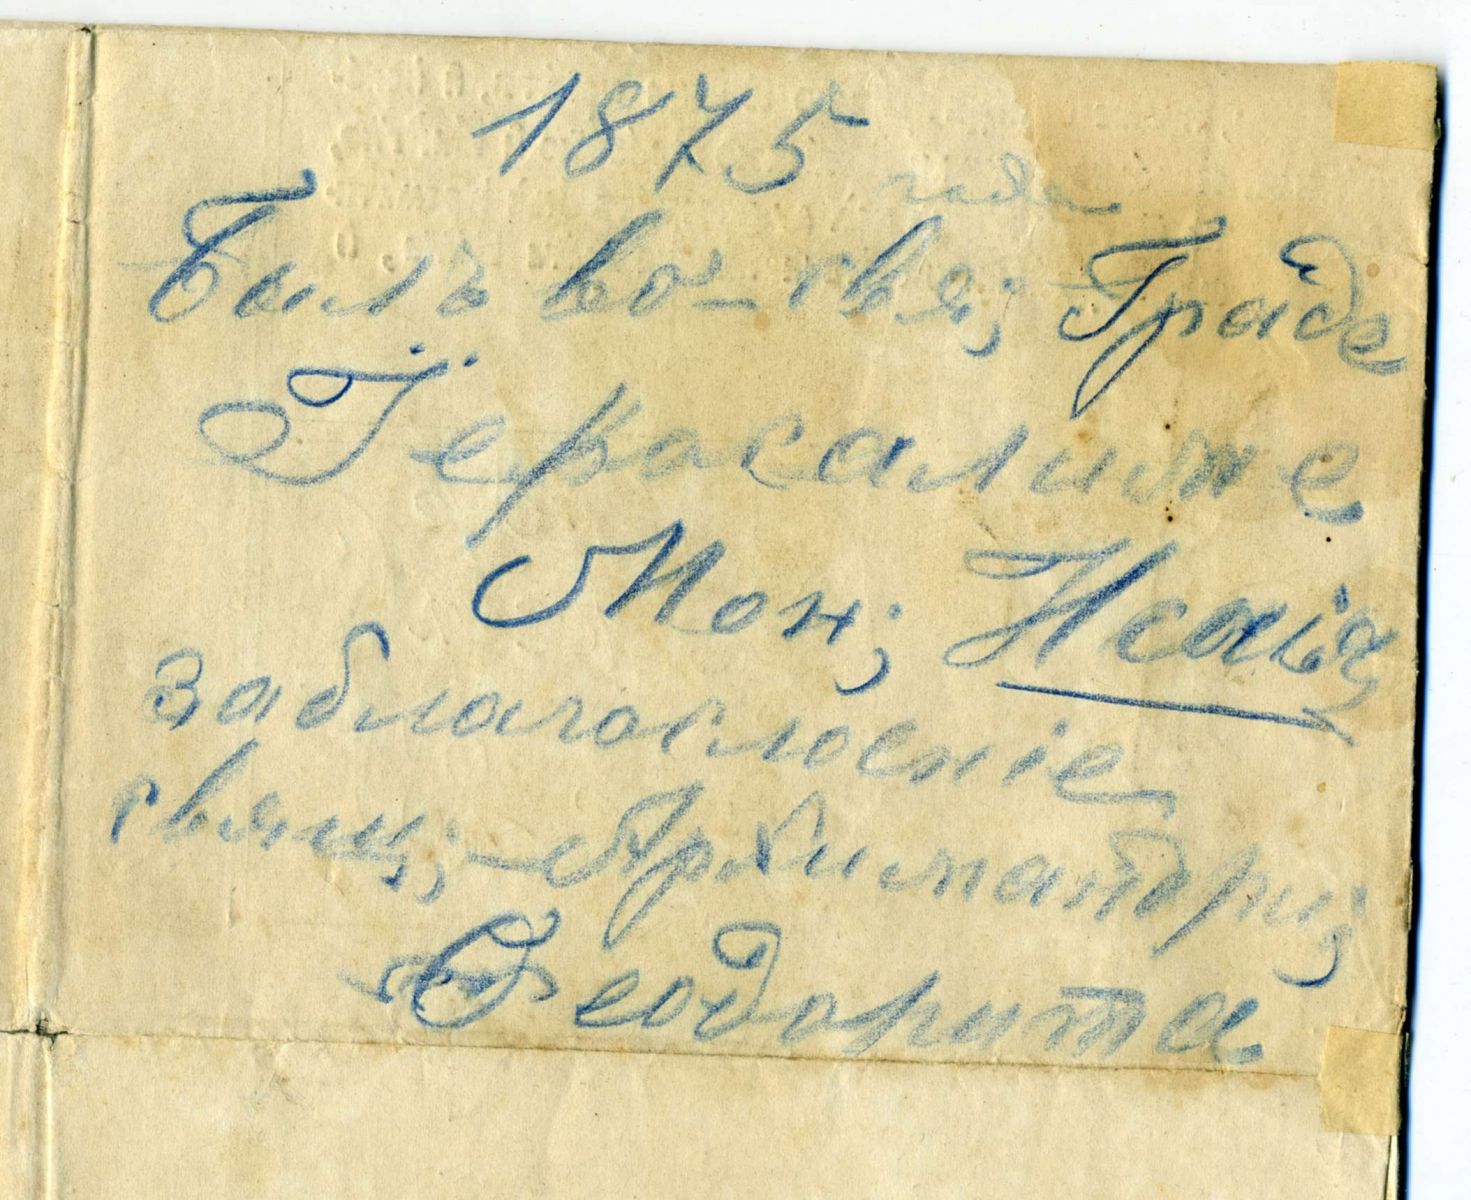 1875 года
Былъ во-свя; Граде
Іерасалиме
Мон; Исаія
заблагослоеніе
свящ; Архимандри;
Ѳеодорита